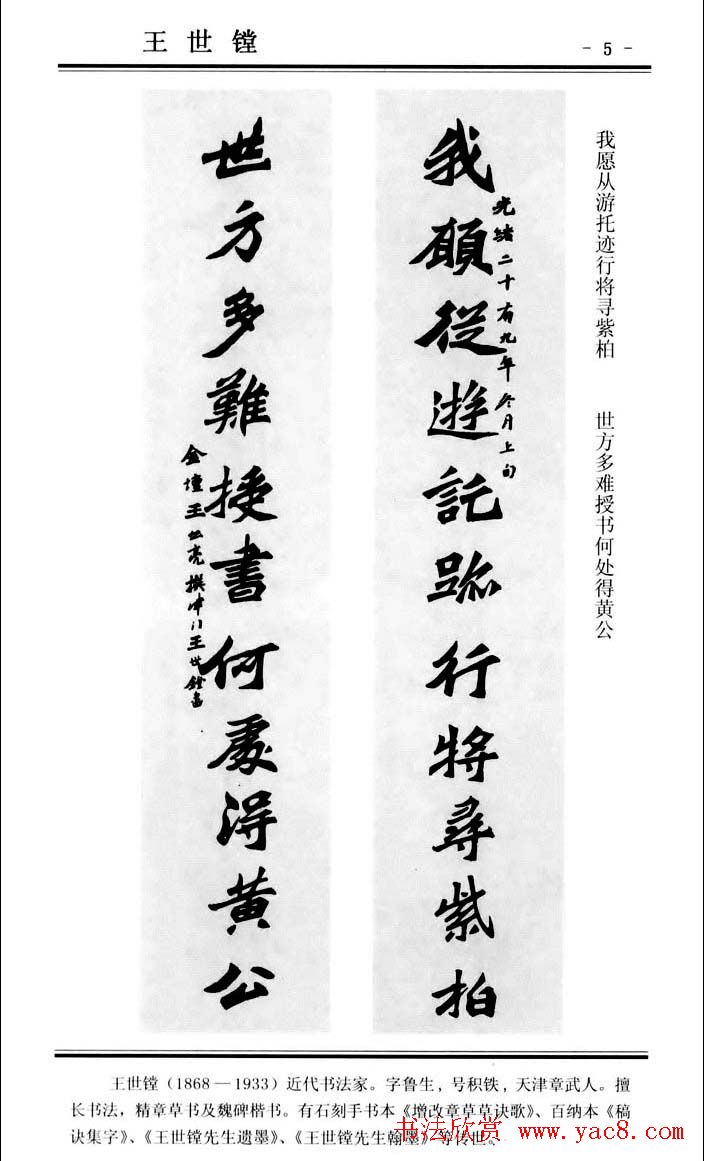 王世镗
- 5 -
我愿从游托迹行将寻紫柏 世方多难授书何处得黄公
我願從遊託跡行將尋紫柏
光緒二十有九年冬月上旬
世方多難授書何處得黃公
金壇王 亮撰 王世鏜書
王世镗（1868—1933）近代书法家。字鲁生，号积铁，天津章武人。擅
长书法，精章草书及魏碑楷书。有石刻手书本《增改章草草诀歌》、百纳本《稿
诀集字》、《王世镗先生遗墨》、《王世镗先生翰墨》等传世。
书法欣赏 www.yac8.com